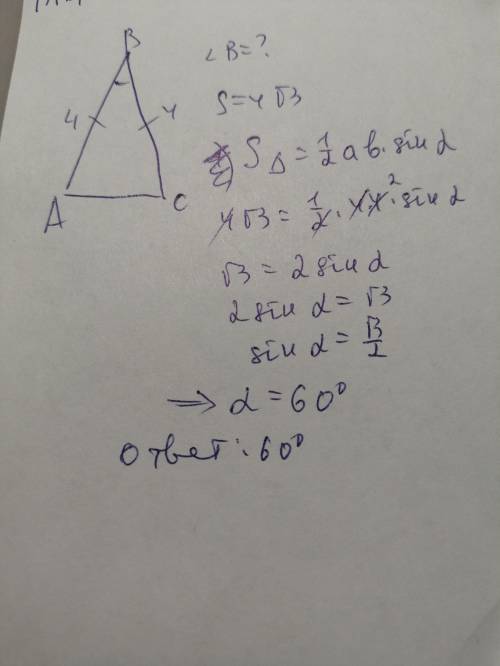 B
∠B=?
4
4
S=4√3
A
C
S△=½ab·sin α
4√3=½·4·4²·sin α
√3=2sin α
2sin α=√3
sin α=√3/2
⇒ α=60°
Ответ: 60°